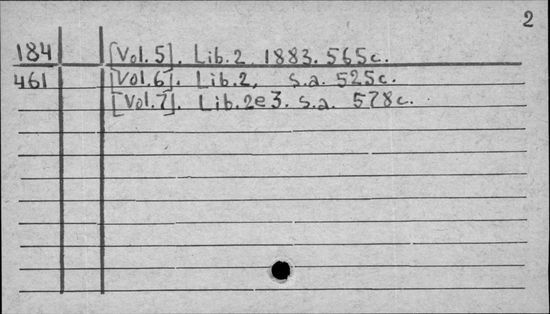 2
184 [Vol.5]. Lib.2 1883. 565c.
461 [Vol.6]. Lib.2, s.a. 525c.
[Vol.7]. Lib.2e3. s.a. 578c.